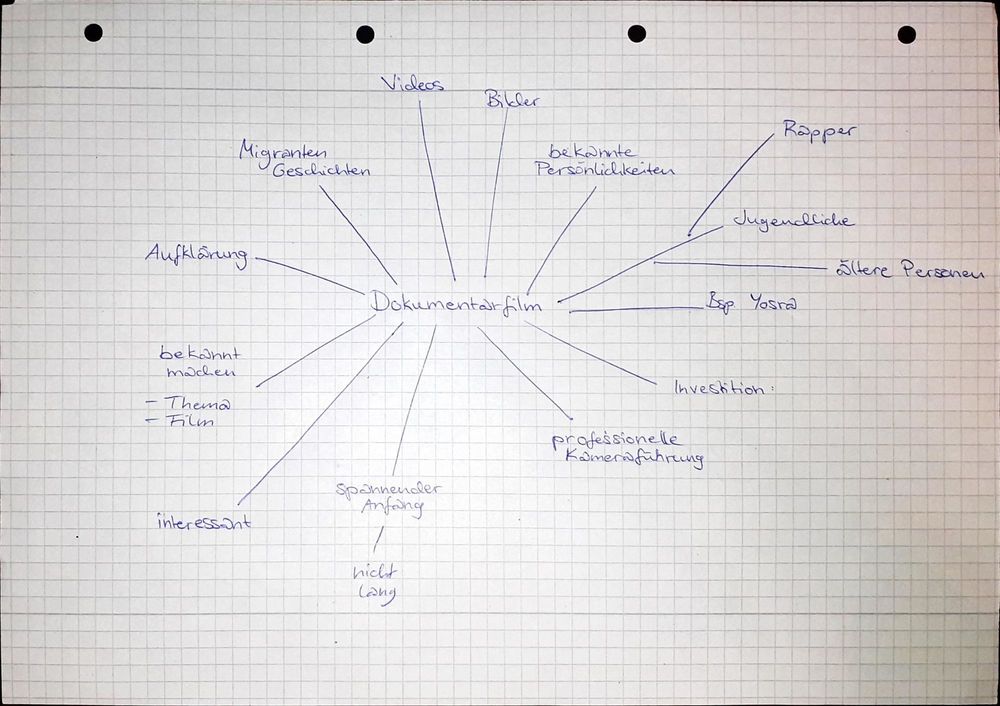 Videos
Bilder
Rapper
Migranten
Geschichten
bekannte
Persönlichkeiten
Jugendliche
Aufklärung
ältere Personen
Dokumentarfilm
Bsp. Yosra
bekannt
machen
- Thema
- Film
Investition:
professionelle
Kameraführung
spannender
Anfang
interessant
nicht
lang